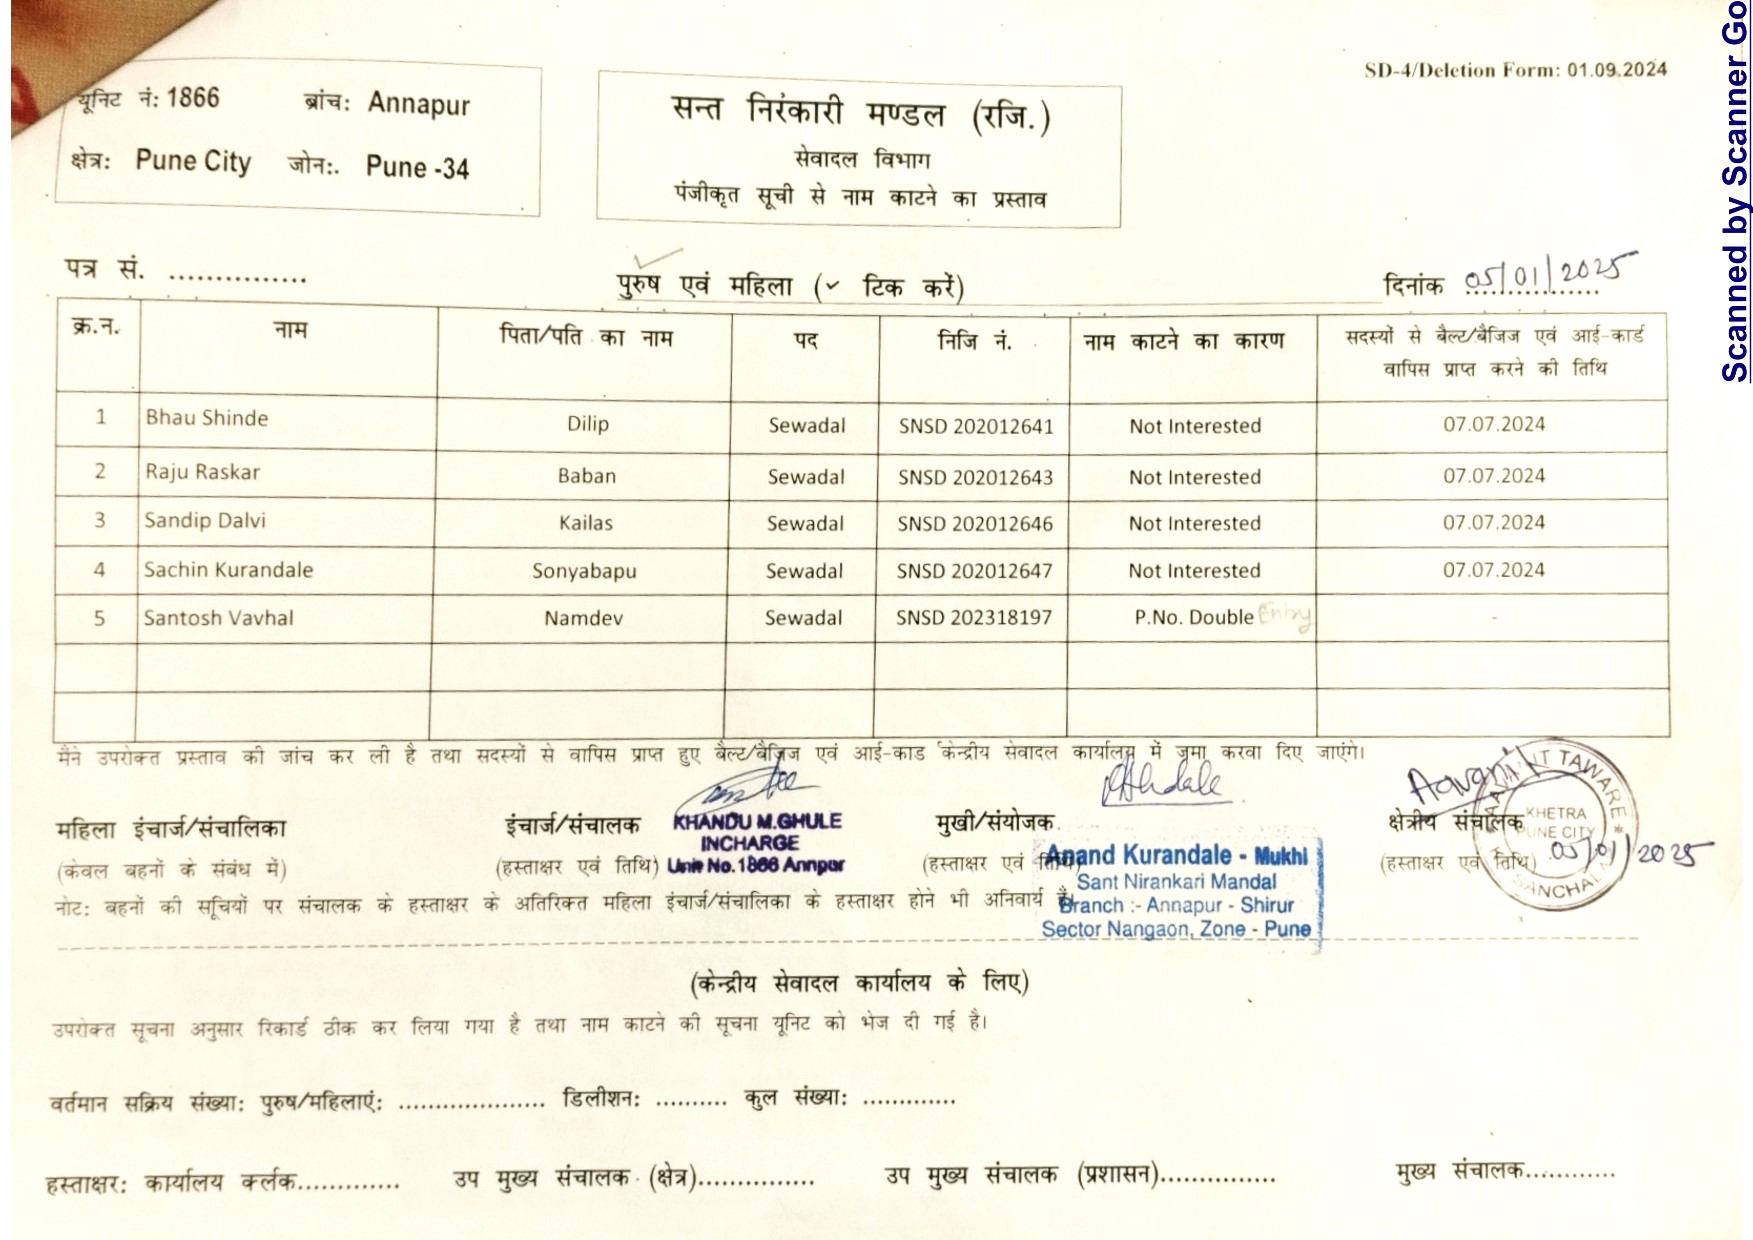 SD-4/Deletion Form: 01.09.2024
यूनिट नं: 1866 ब्रांच: Annapur
क्षेत्र: Pune City जोन:. Pune -34
सन्त निरंकारी मण्डल (रजि.)
सेवादल विभाग
पंजीकृत सूची से नाम काटने का प्रस्ताव
पत्र सं. ...............
पुरुष एवं महिला (✓ टिक करें)
दिनांक 05/01/2025
क्र.न. नाम पिता/पति का नाम पद निजि नं. नाम काटने का कारण सदस्यों से बैल्ट/बैजिज एवं आई-कार्ड वापिस प्राप्त करने की तिथि
1 Bhau Shinde Dilip Sewadal SNSD 202012641 Not Interested 07.07.2024
2 Raju Raskar Baban Sewadal SNSD 202012643 Not Interested 07.07.2024
3 Sandip Dalvi Kailas Sewadal SNSD 202012646 Not Interested 07.07.2024
4 Sachin Kurandale Sonyabapu Sewadal SNSD 202012647 Not Interested 07.07.2024
5 Santosh Vavhal Namdev Sewadal SNSD 202318197 P.No. Double Entry -
मैंने उपरोक्त प्रस्ताव की जांच कर ली है तथा सदस्यों से वापिस प्राप्त हुए बैल्ट/बैजिज एवं आई-काड केन्द्रीय सेवादल कार्यालय में जमा करवा दिए जाएंगे।
महिला इंचार्ज/संचालिका
(केवल बहनों के संबंध में)
इंचार्ज/संचालक
(हस्ताक्षर एवं तिथि)
KHANDU M.GHULE
INCHARGE
Unit No.1866 Annpur
मुखी/संयोजक
(हस्ताक्षर एवं तिथि)
Anand Kurandale - Mukhi
Sant Nirankari Mandal
Branch :- Annapur - Shirur
Sector Nangaon, Zone - Pune
क्षेत्रीय संचालक
(हस्ताक्षर एवं तिथि)
05/01/2025
TAWARE
KHETRA
PUNE CITY
SANCHALAK
नोट: बहनों की सूचियों पर संचालक के हस्ताक्षर के अतिरिक्त महिला इंचार्ज/संचालिका के हस्ताक्षर होने भी अनिवार्य हैं।
(केन्द्रीय सेवादल कार्यालय के लिए)
उपरोक्त सूचना अनुसार रिकार्ड ठीक कर लिया गया है तथा नाम काटने की सूचना यूनिट को भेज दी गई है।
वर्तमान सक्रिय संख्या: पुरुष/महिलाएं: ..................... डिलीशन: .......... कुल संख्या: .............
हस्ताक्षर: कार्यालय क्लर्क............. उप मुख्य संचालक (क्षेत्र)............... उप मुख्य संचालक (प्रशासन)............... मुख्य संचालक............
Scanned by Scanner Go